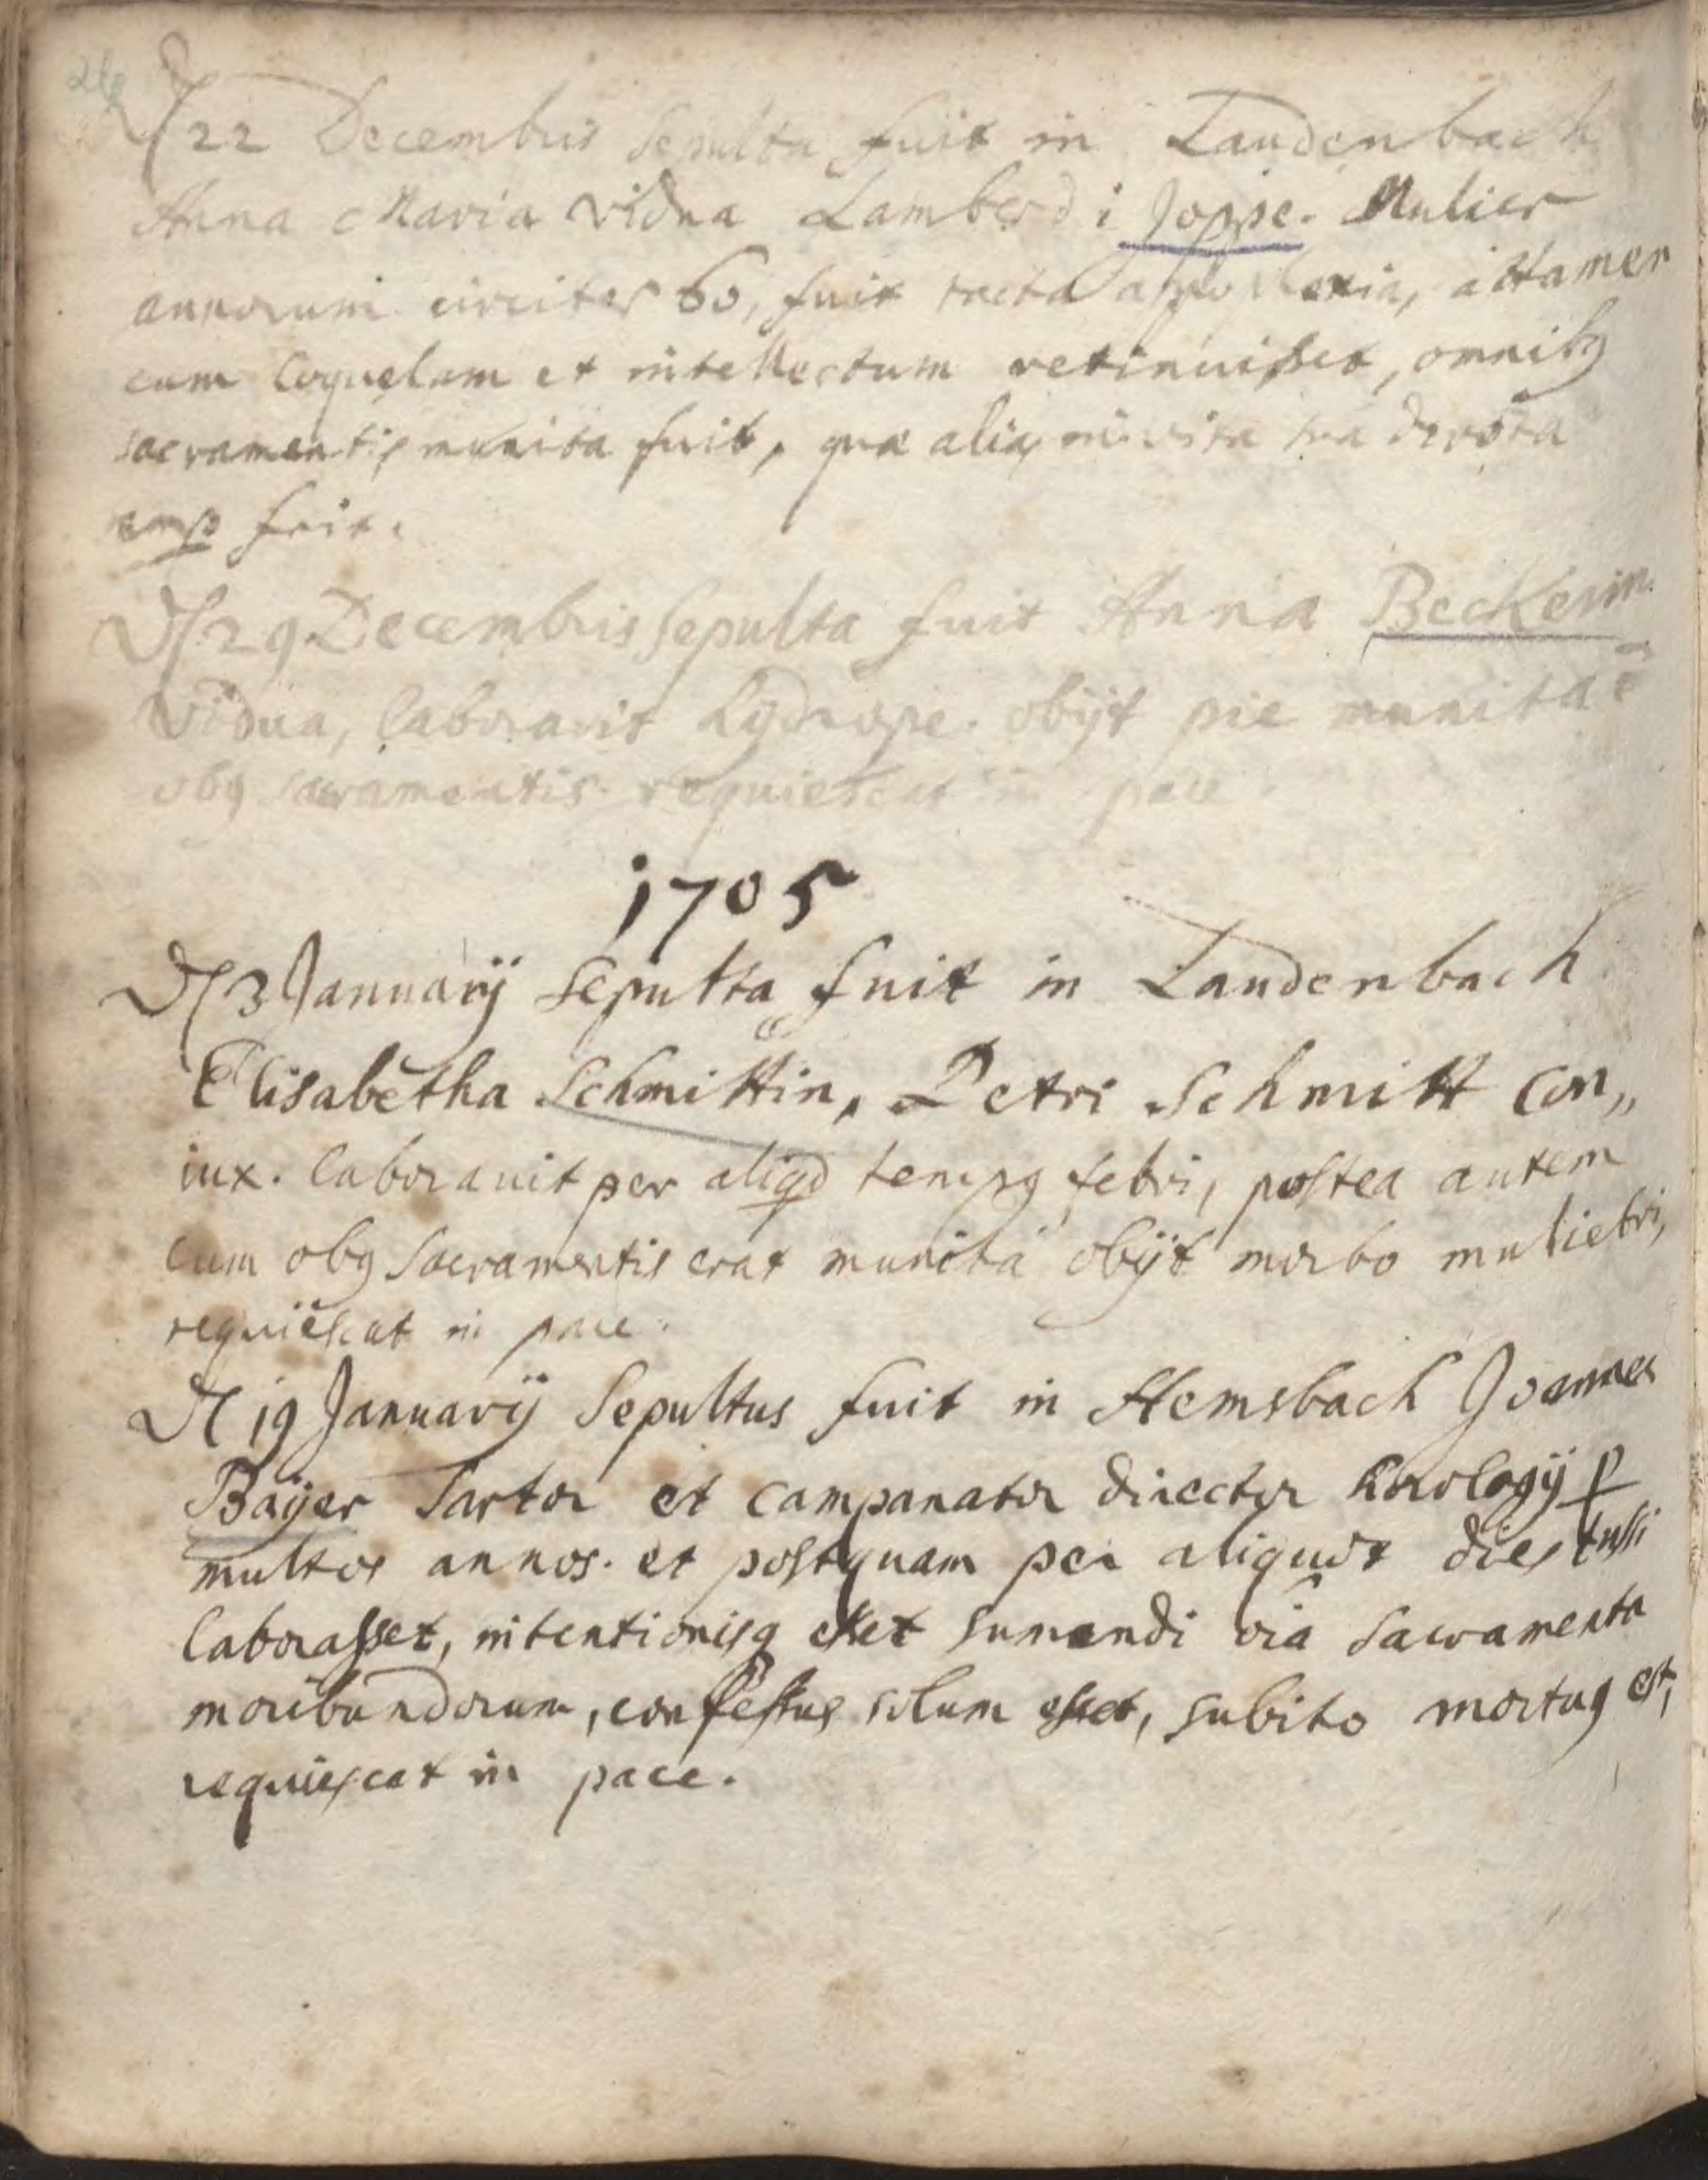 26
D 22 Decembris Sepulta fuit in Laudenbach
Anna Maria vidua Lamberdi Joppe. Mulier
annorum circiter 60, fuit tacta apoplexia, attamen
cum loquelam et intellectum retinuisset, omnib9
sacramentis munita fuit, quæ alias in vita sua devota
fuit.
D 29 Decembris sepulta fuit Anna Beckerin
vidua, laboravit hydrope. obijt pie munita
obg sacramentis requiescat in pace.
1705
D 3 Januarij sepulta fuit in Laudenbach
Elisabetha Schmittin, Petri Schmitt con„
iux. laborauit per aliqd temp9 febri, postea autem
cum obg Sacramentis erat munita obijt morbo muliebri,
requiescat in pace.
D 19 Januarij Sepultus fuit in Hemsbach Joannes
Baÿer Sartor et campanator director horologij p
multos annos. et postquam per aliquot dies tussi
laborasset, intentionisq esset sumendi oia Sacramenta
moribundorum, confessus solum esset, subito mortu9 est,
requiescat in pace.